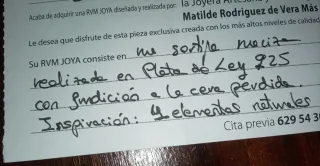 la Joyera Artesana
Acaba de adquirir una RVM JOYA diseñada y realizada por:
Matilde Rodriguez de Vera Más
Le desea que disfrute de esta pieza exclusiva creada con los más altos niveles de calidad
Su RVM JOYA consiste en una sortija maciza
realizada en Plata de Ley 925
con fundición a la cera perdida.
Inspiración: 4 elementos naturales
Cita previa 629 54 3